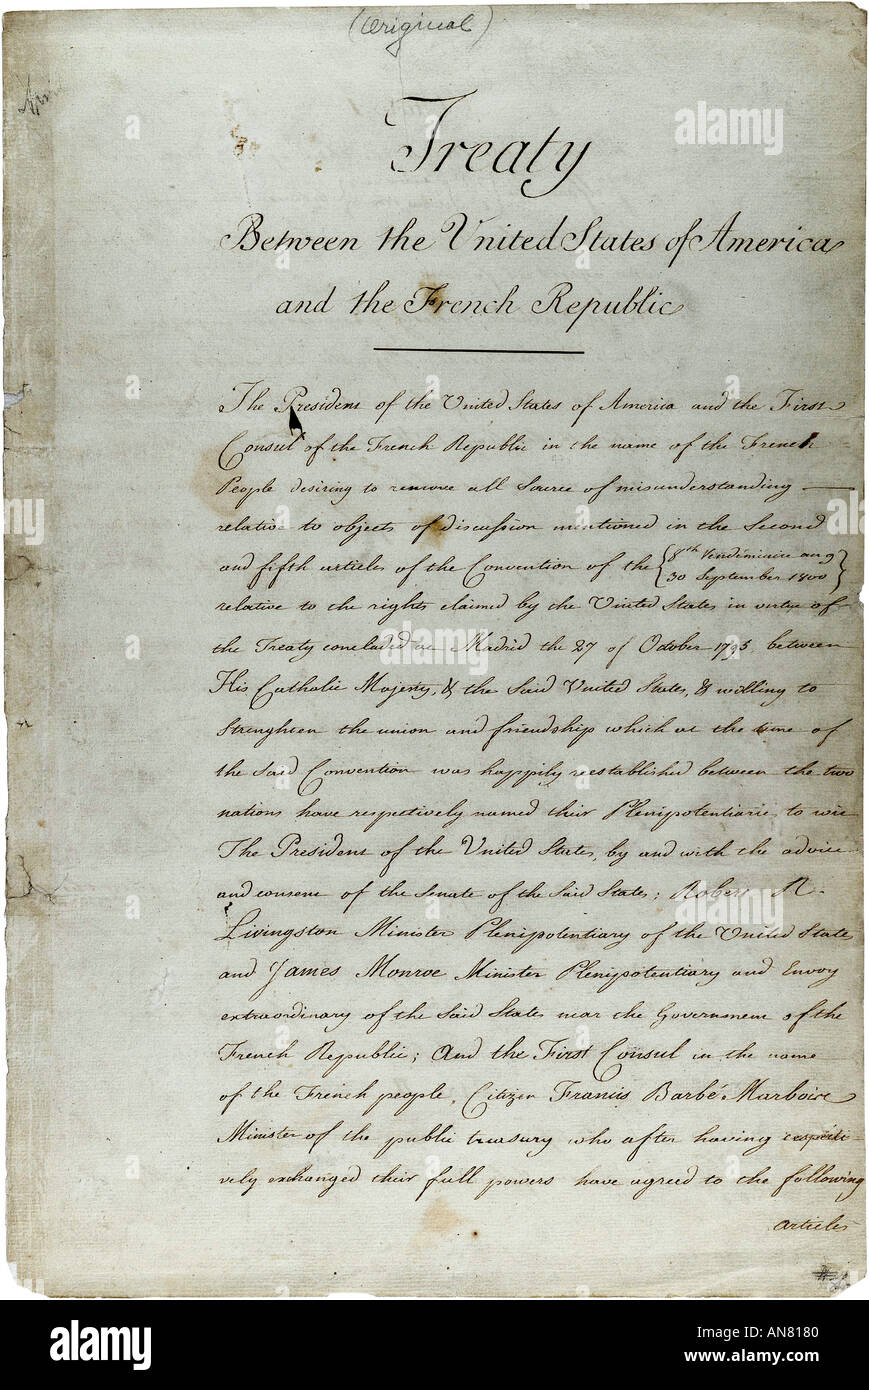 (Original)
Treaty
Between the United States of America
and the French Republic
The President of the United States of America and the First
Consul of the French Republic in the name of the French
People desiring to remove all Source of misunderstanding
relative to objects of discussion mentioned in the Second
and fifth articles of the Convention of the {8th Vendémiaire an 9
30 September 1800}
relative to the rights claimed by the United States in virtue of
the Treaty concluded at Madrid the 27 of October 1795, between
His Catholic Majesty, & the Said United States, & willing to
Strenghten the union and friendship which at the time of
the Said Convention was happily reestablished between the two
nations have respectively named their Plenipotentiaries to wit
The President of the United States, by and with the advice
and consent of the Senate of the Said States; Robert R.
Livingston Minister Plenipotentiary of the United States
and James Monroe Minister Plenipotentiary and Envoy
extraordinary of the Said States near the Government of the
French Republic; And the First Consul in the name
of the French people, Citizen Francis Barbé Marbois
Minister of the public treasury who after having respecti-
vely exchanged their full powers have agreed to the following
articles
alamy
a
alamy
Image ID: AN8180
www.alamy.com